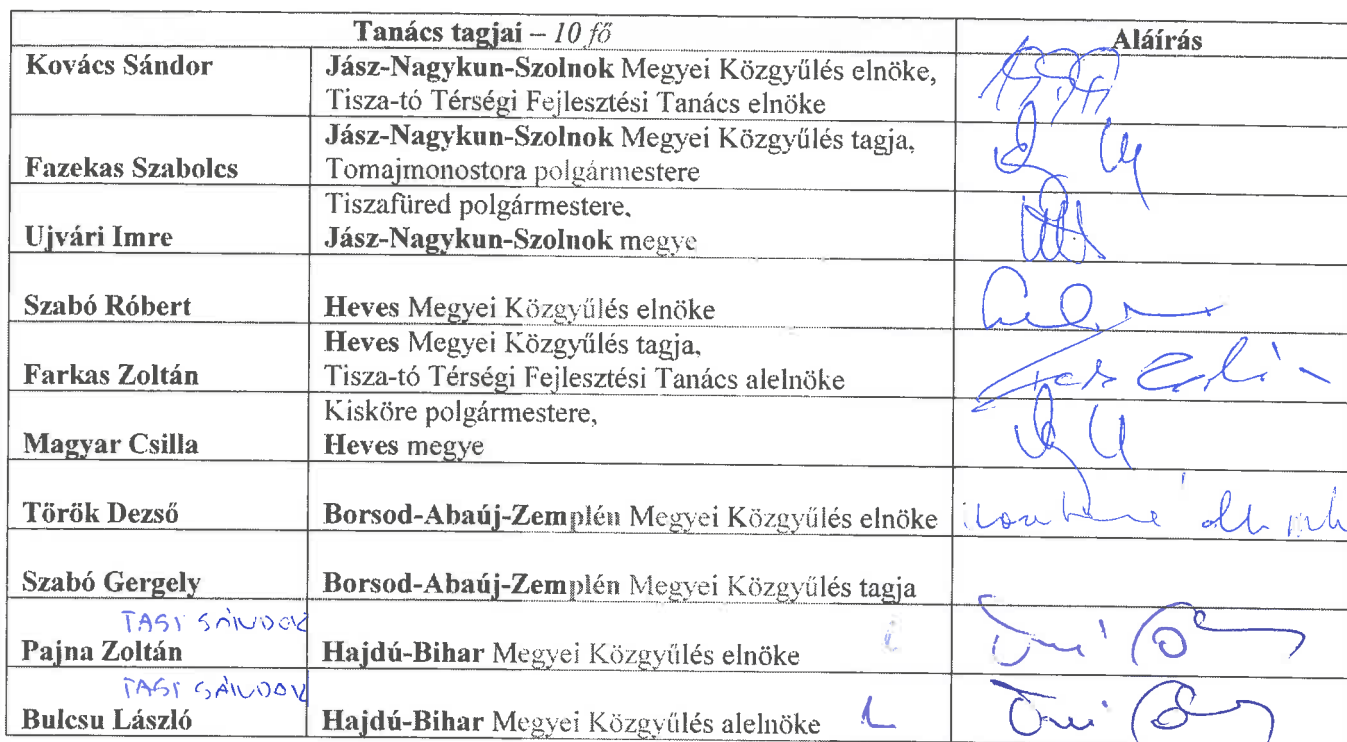 Tanács tagjai – 10 fő Aláírás
Kovács Sándor Jász-Nagykun-Szolnok Megyei Közgyűlés elnöke,
Tisza-tó Térségi Fejlesztési Tanács elnöke
Jász-Nagykun-Szolnok Megyei Közgyűlés tagja,
Fazekas Szabolcs Tomajmonostora polgármestere
Tiszafüred polgármestere,
Ujvári Imre Jász-Nagykun-Szolnok megye
Szabó Róbert Heves Megyei Közgyűlés elnöke
Heves Megyei Közgyűlés tagja,
Farkas Zoltán Tisza-tó Térségi Fejlesztési Tanács alelnöke
Kisköre polgármestere,
Magyar Csilla Heves megye
Török Dezső Borsod-Abaúj-Zemplén Megyei Közgyűlés elnöke
Szabó Gergely Borsod-Abaúj-Zemplén Megyei Közgyűlés tagja
TASI SÁNDOR
Pajna Zoltán Hajdú-Bihar Megyei Közgyűlés elnöke
TASI SÁNDOR
Bulcsu László Hajdú-Bihar Megyei Közgyűlés alelnöke